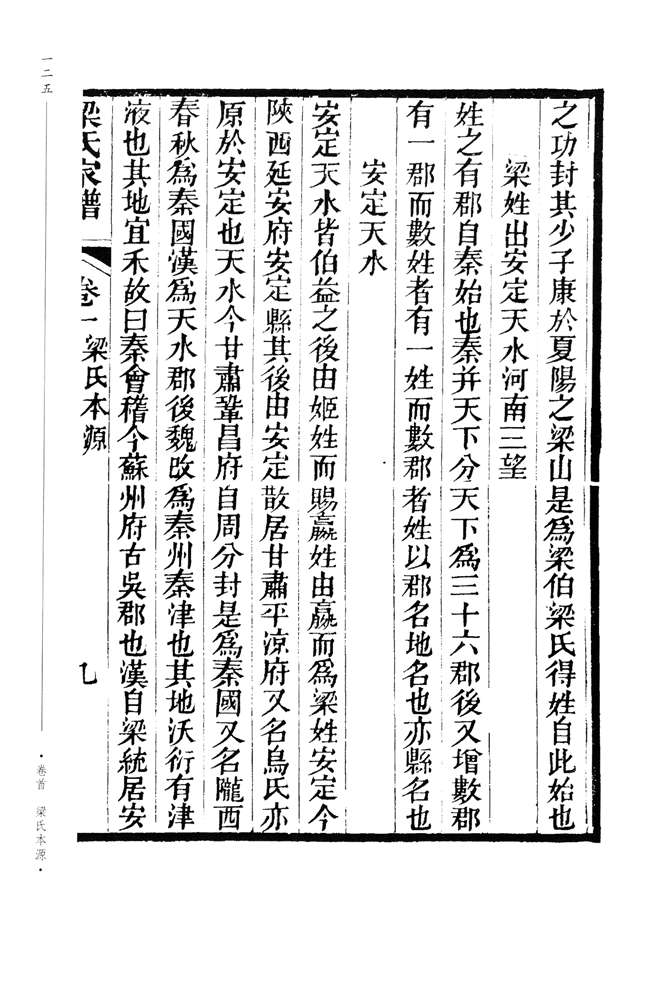 之功封其少子康於夏陽之梁山是爲梁伯梁氏得姓自此始也
梁姓出安定天水河南三望
姓之有郡自秦始也秦并天下分天下爲三十六郡後又增數郡
有一郡而數姓者有一姓而數郡者姓以郡名地名也亦縣名也
安定天水
安定天水皆伯益之後由姬姓而賜嬴姓由嬴而爲梁姓安定今
陝西延安府安定縣其後由安定散居甘肅平涼府又名烏氏亦
原於安定也天水今甘肅鞏昌府自周分封是爲秦國又名隴西
春秋爲秦國漢爲天水郡後魏改爲秦州秦津也其地沃衍有津
液也其地宜禾故曰秦會稽今蘇州府古吳郡也漢自梁統居安
梁氏家譜 卷一 梁氏本源 九
一二五
·卷首 梁氏本源·